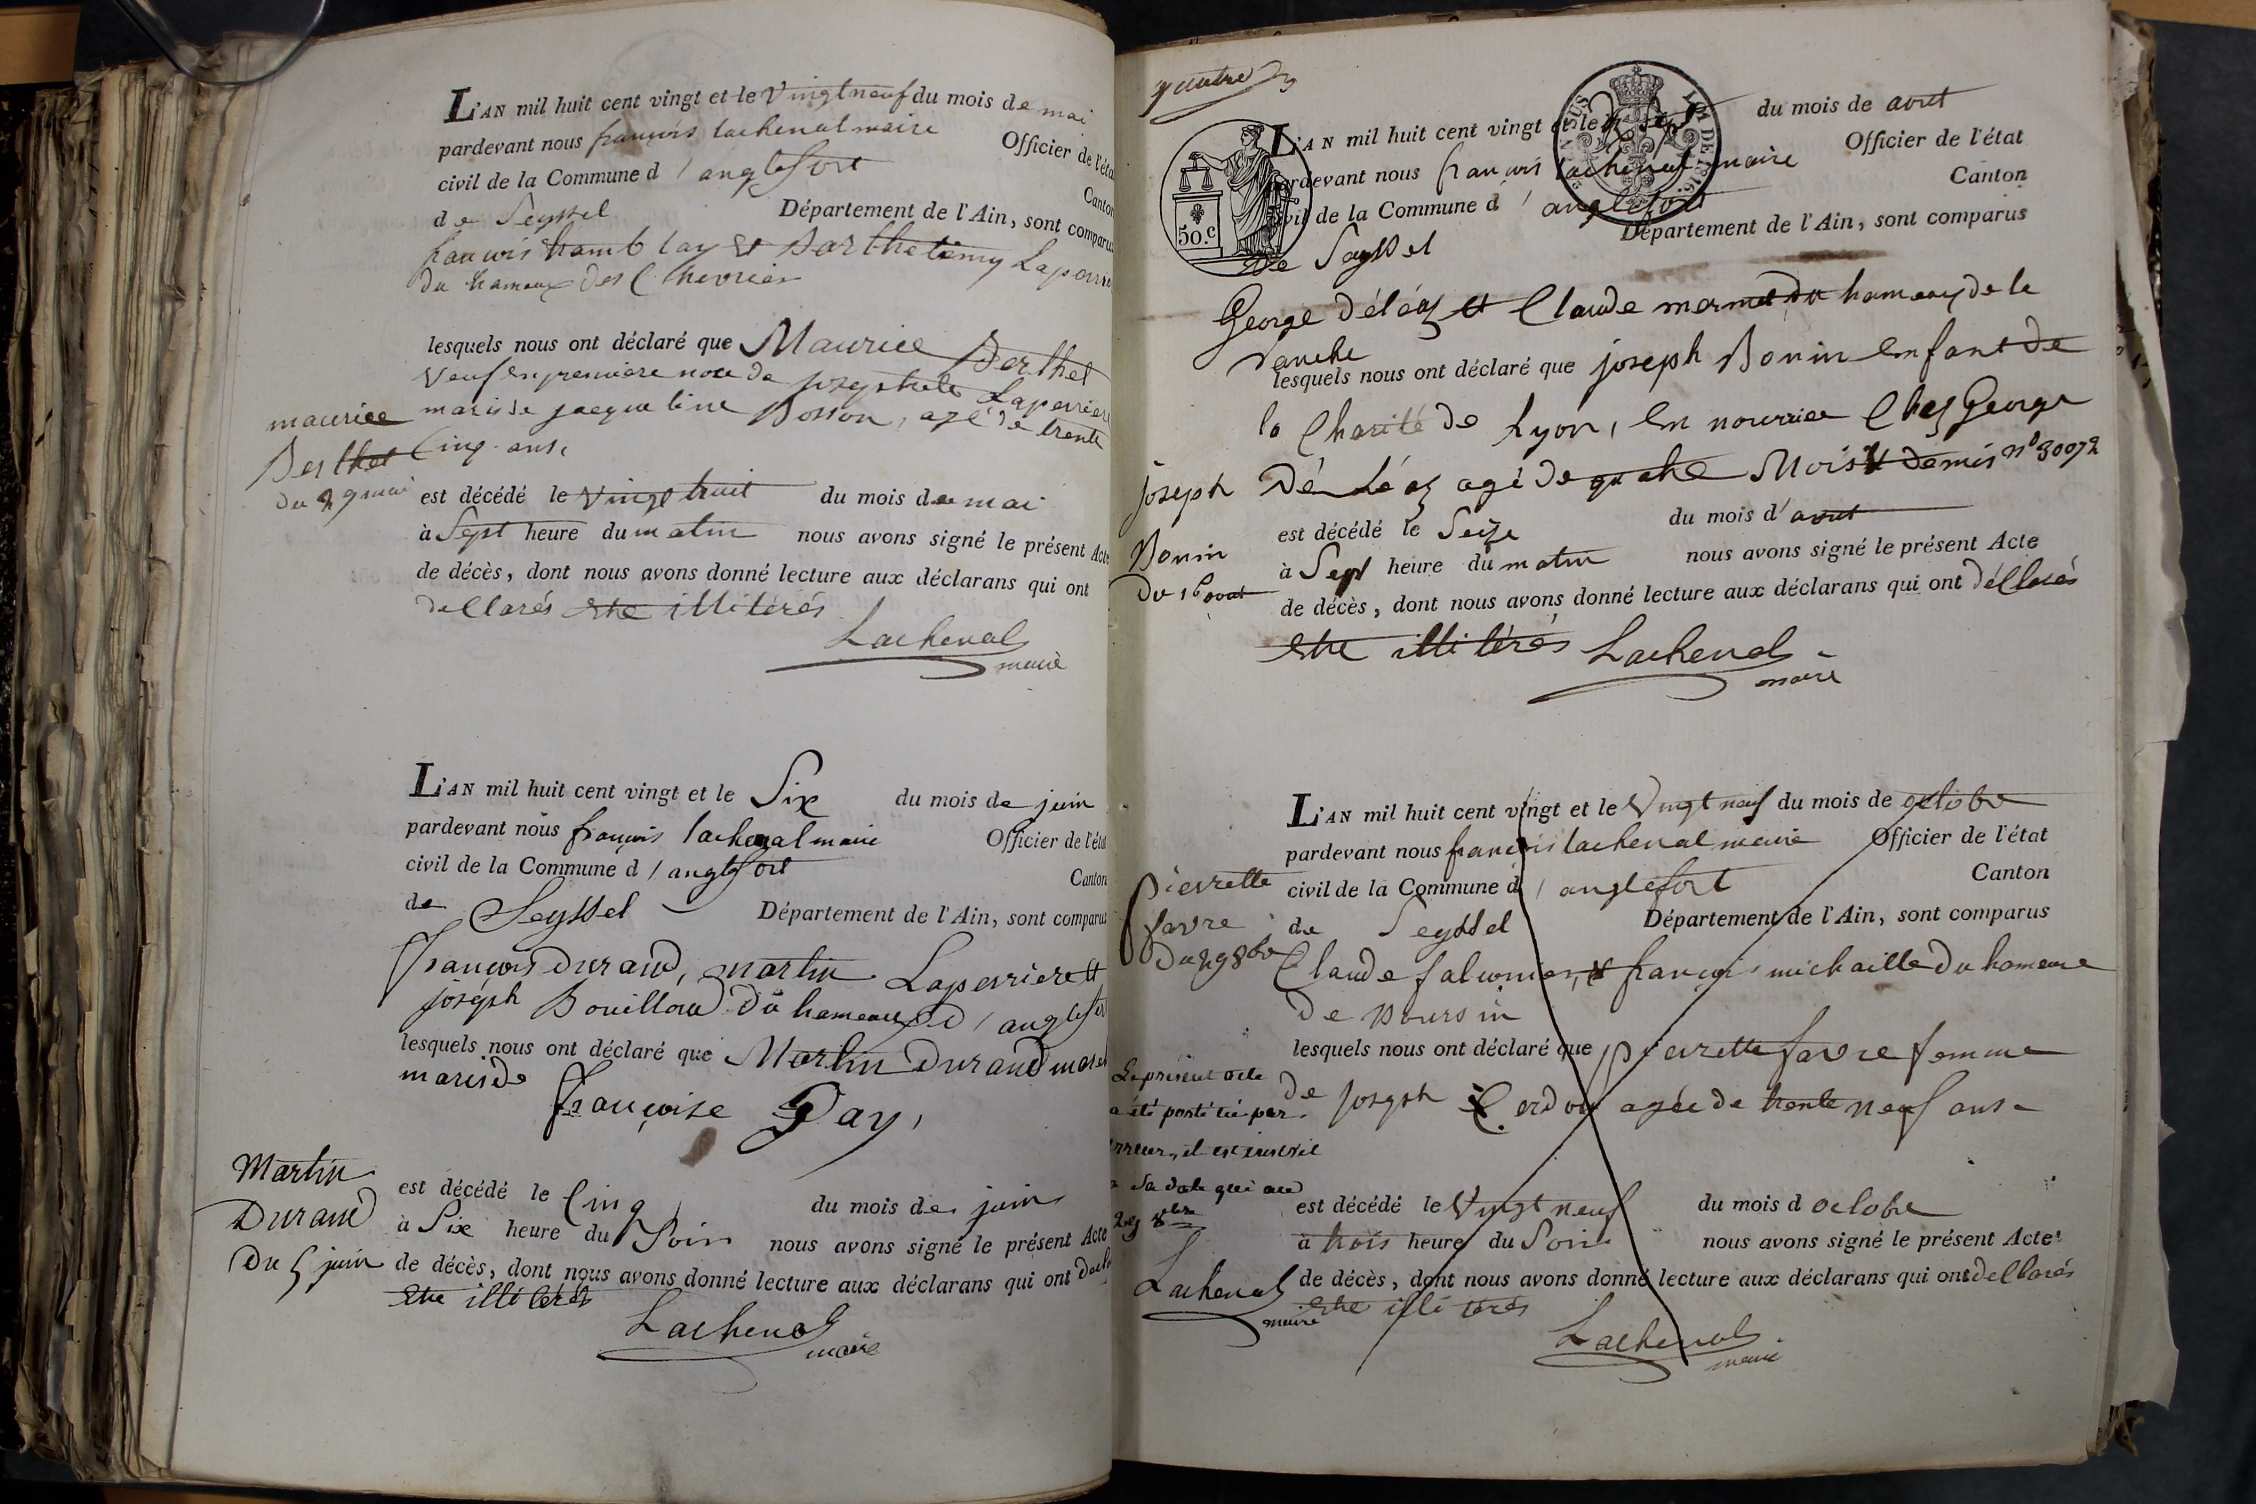 L'AN mil huit cent vingt et le vingt neuf du mois de mai
pardevant nous françois lachenal maire Officier de l'éta
civil de la Commune d'anglefort Canton
de Seyssel Département de l'Ain, sont comparus
françois hamb lay et Barthelemy Laperrie
du hameau des Chevrier
lesquels nous ont déclaré que Maurice Berthet
veuf en premiere noce de josephete Laperriere
maris de jacqueline Bosson, agé de trente
Cinq ans,
maurice
Berthet
du 29 mai
est décédé le vingt huit du mois de mai
à Sept heure du matin nous avons signé le présent Acte
de décès, dont nous avons donné lecture aux déclarans qui ont
dellarés etre illitérés
Lachenal
maire
L'AN mil huit cent vingt et le Six du mois de juin
pardevant nous françois lachenal maire Officier de l'état
civil de la Commune d'anglefort Canton
de Seyssel Département de l'Ain, sont comparus
françois durand, martin Laperriere et
joséph Bouilloud du hameau d'anglefort
lesquels nous ont déclaré que Martin Durand
maris de
françoise Day,
Martin
Durand
Du 5 juin
est décédé le Cinq du mois de juin
à Six heure du Soir nous avons signé le présent Acte
de décès, dont nous avons donné lecture aux déclarans qui ont
etre illitérés
Lachenal
maire
quatre
50.c
L'AN mil huit cent vingt et le du mois de avril
pardevant nous françois lachenal maire Officier de l'état
civil de la Commune d'anglefort Canton
de Seyssel Département de l'Ain, sont comparus
George déléaz et Claude mermet du hameau de la
lesquels nous ont déclaré que joseph Bonin enfant de
la Charité de Lyon, en nourrice Chez George
Déléaz agé de quatre Mois et demis n° 30072
joseph
Bonin
Du 16 avril
est décédé le Seize du mois d'avril
à Sept heure du matin nous avons signé le présent Acte
de décès, dont nous avons donné lecture aux déclarans qui ont déllarés
etre illitérés Lachenal
maire
L'AN mil huit cent vingt et le vingt neuf du mois de octobre
pardevant nous françois lachenal maire Officier de l'état
civil de la Commune d'anglefort Canton
de Seyssel Département de l'Ain, sont comparus
pierrette
favre
du 29 8bre
Claude falconier, et françois michaille du hameau
de Boursin
lesquels nous ont déclaré que pierrette favre femme
de joseph Cerdon agée de trente neuf ans
Le présent acte
a été porté ici par
erreur, il est inscrit
a sa date qui au
29 8bre
Lachenal
maire
est décédé le vingt neuf du mois d octobre
à trois heure du Soir nous avons signé le présent Acte
de décès, dont nous avons donné lecture aux déclarans qui ont dellarés
etre illitérés
Lachenal
maire